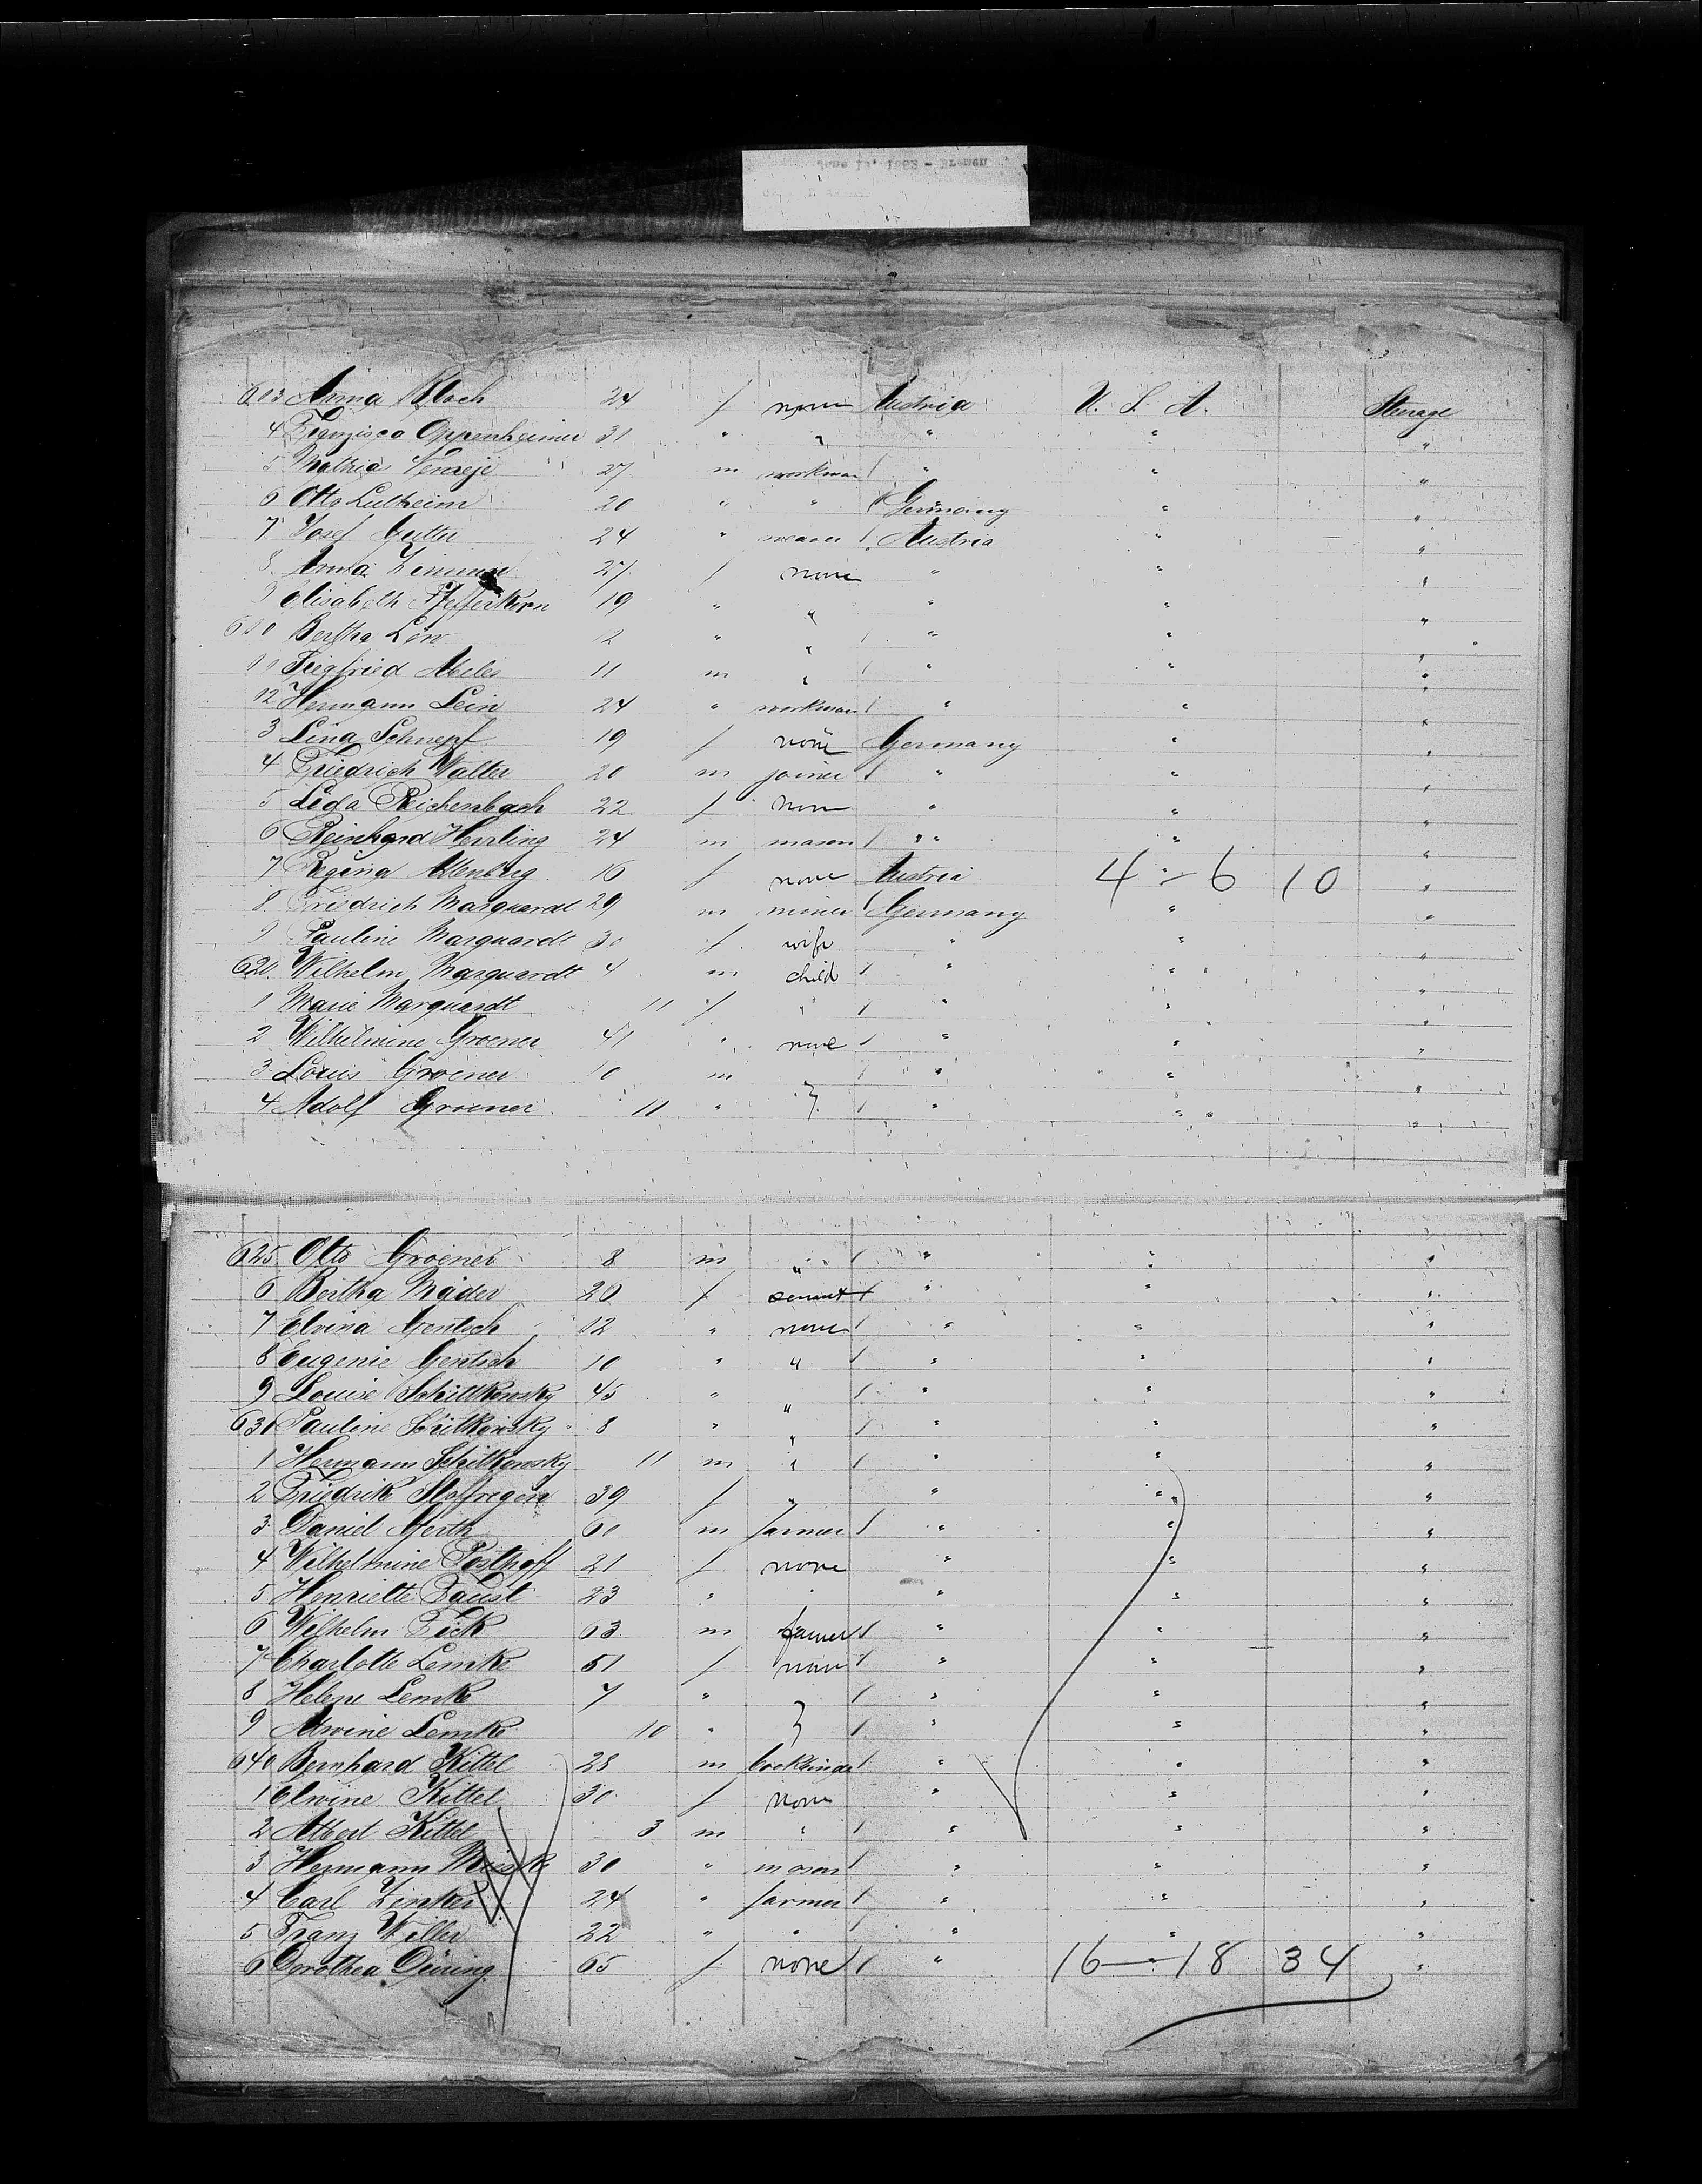 June 1 , 1882 - Bremen
603 Anna Bloch 24 f none Austria U. S. A. Steerage
4 Franzisca Oppenheimer 31 " " " " "
5 Mathias 27 m workman / " " "
6 Otto Lutheim 20 " " / Germany " "
7 Josef Gutter 24 " weaver / Austria " "
8 Anna 27 f none " " "
9 Elisabeth Pfefferkorn 19 " " " " "
610 Bertha Löw 12 " " / " " "
11 Siegfried Abeles 11 m " / " " "
12 Hermann Lein 24 " workman / " " "
3 Lina Schnepf 19 f none Germany " "
4 Friedrich Walter 20 m joiner / " " "
5 Lida Reichenbach 22 f none " " "
6 Reinhard Herrling 24 m mason / " " "
7 Regina Altenberg 16 f none Austria 4 - 6 10 "
8 Friedrich Marquardt 29 m miner / Germany " "
9 Pauline Marquardt 30 f wife " " "
620 Wilhelm Marquardt 4 m child / " " "
1 Marie Marquardt 11 f " / " " "
2 Wilhelmine Groener 41 " none / " " "
3 Louis Groener 10 m / " " "
4 Adolf Groener 11 " } / " " "
625 Otto Groener 8 m " / " " "
6 Bertha Mäder 20 f servant / " " "
7 Elvina Gentsch 12 " none / " " "
8 Eugenie Gentsch 10 " " / " " "
9 Louise Schittkowsky 45 " " / " " "
630 Pauline Schittkowsky 8 " " / " " "
1 Hermann Schittkowsky 11 m " / " " "
2 Friedrik Stofregen 39 f " " " "
3 Daniel Gerth 60 m farmer / " " "
4 Wilhelmine Posthoff 21 f none " " "
5 Henriette Faust 23 " " " " "
6 Wilhelm Fick 63 m farmer / " " "
7 Charlotte Lemke 51 f none / " " "
8 Helene Lemke 7 " } / " " "
9 Alwine Lemke 10 " / " " "
640 Bernhard Kittel 28 m bookbinder / " " "
1 Elwine Kittel 30 f none " " "
2 Albert Kittel 3 m " / " " "
3 Hermann 30 " mason / " " "
4 Carl Zinker 24 " farmer / " " "
5 Franz Willer 22 " " / " " "
6 Dorothea Düring 65 f none / " 16 - 18 34 "